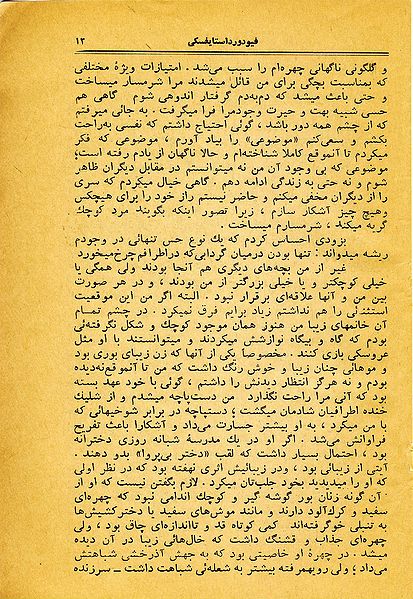 فیودور داستایفسکی ۱۳
و گلگونی ناگهانی چهره‌ام را سبب می‌شد. امتیازات ویژهٔ مختلفی
که بمناسبت بچگی برای من قائل میشدند مرا شرمسار میساخت
و حتی باعث میشد که دم‌بدم گرفتار اندوهی شوم گاهی هم
حسی شبیه بهت و حیرت وجودمرا فرا میگرفت. به جائی میرفتم
که از چشم همه دور باشد، گوئی احتیاج داشتم که نفسی به‌راحت
بکشم و سعی‌کنم «موضوعی» را بیاد آورم، موضوعی که فکر
میکردم تا آنموقع کاملا شناخته‌ام و حالا ناگهان از یادم رفته است؛
موضوعی که بی وجود آن من نه میتوانستم در مقابل دیگران ظاهر
شوم و نه حتی به زندگی ادامه دهم. گاهی خیال میکردم که سری
را از دیگران مخفی میکنم و حاضر نیستم راز خود را برای هیچکس
وهیچ چیز آشکار سازم، زیرا تصور اینکه بگویند مرد کوچک
گریه میکند، شرمسارم میساخت.
بزودی احساس کردم که یك نوع حس تنهائی در وجودم
ریشه میدواند: تنها بودن درمیان گردابی‌که دراطرافم چرخ‌میخورد
غیر از من بچه‌های دیگری هم آنجا بودند ولی همگی یا
خیلی کوچکتر و یا خیلی بزرگتر از من بودند، و در هر صورت
بین من و آنها علاقه‌ای برقرار نبود. البته اگر من این موقعیت
استثنائی را هم نداشتم زیاد برایم فرق نمیکرد. در چشم تمام
آن خانمهای زیبا من هنوز همان موجود کوچك و شکل نگرفته‌ئی
بودم که گاه و بیگاه نوازشش میکردند و میتوانستند با او مثل
عروسکی بازی کنند. مخصوصا یکی از آنها که زن زیبای بوری بود
و موهائی چنان زیبا و خوش رنگ داشت که من تا آنموقع‌ندیده
بودم و نه هرگز انتظار دیدنش را داشتم، گوئی با خود عهد بسته
بود که آنی مرا راحت نگذارد. من دست‌پاچه میشدم و از شلیك
خنده اطرافیان شادمان میگشت؛ دستپاچه در برابر شوخیهائی که
با من میکرد، به او بیشتر جسارت می‌داد و آشکارا باعث تفریح
فراوانش می‌شد. اگر او در یك مدرسهٔ شبانه روزی دخترانه
بود، احتمال بسیار داشت که لقب «دختر بی‌پروا» بدو دهند.
آیتی از زیبائی بود، ودر زیبائیش اثری نهفته بود که در نظر اولی
که او را میدیدید بخود جلب‌تان میکرد. لازم بگفتن نیست که او از
آن گونه زنان بور گوشه گیر و کوچك اندامی نبود که چهره‌ای
سفید و کرك‌آلود دارند و مانند موش‌های سفید یا دخترکشیش‌ها
به تنبلی خوگرفته‌اند. کمی کوتاه قد و تااندازه‌ای چاق بود، ولی
چهره‌ای جذاب و قشنگ داشت که خال‌هائی زیبا در آن دیده
میشد. در چهرهٔ او خاصیتی بود که به جهش آذرخشی شباهتش
می‌داد؛ ولی رویهمرفته بیشتر به شعله‌ئی شباهت داشت ــ سرزنده